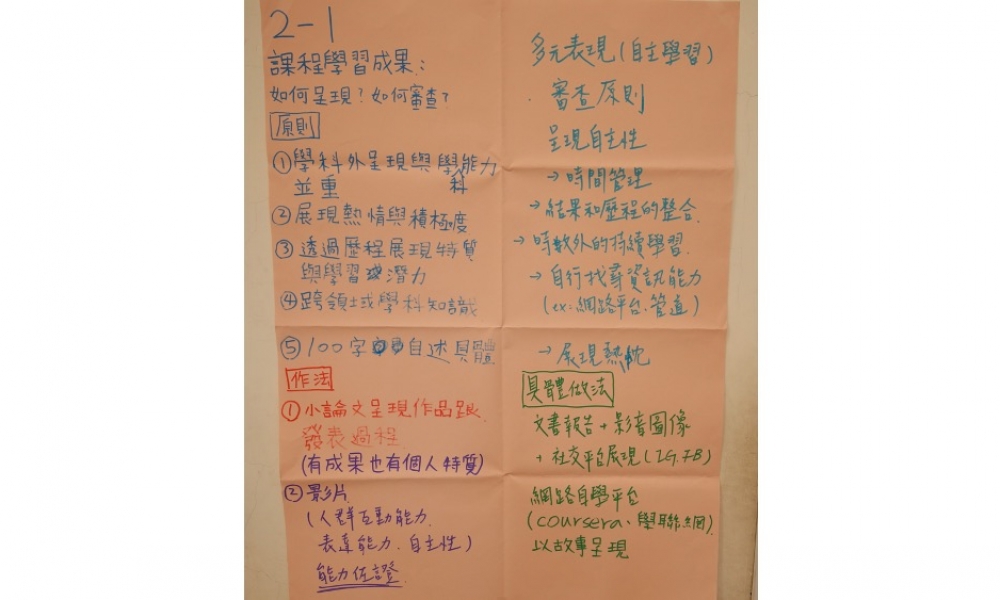 2-1
課程學習成果：
如何呈現？如何審查？
原則
①學科外呈現與學科能力
並重
②展現熱情與積極度
③透過歷程展現特質
與學習潛力
④跨領域或學科知識
⑤100字自述具體
作法
①小論文呈現作品跟
發表過程
(有成果也有個人特質)
②影片
(人群互動能力、
表達能力、自主性)
能力佐證
多元表現(自主學習)
審查原則
呈現自主性
→時間管理
→結果和歷程的整合
→時數外的持續學習
→自行找尋資訊能力
(ex:網路平台、管道)
→展現熱忱
具體做法
文書報告+影音圖像
+社交平台展現(IG.FB)
網路自學平台
(coursera、學聯網)
以故事呈現